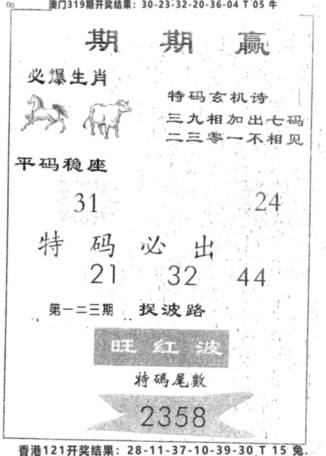 澳门319期开奖结果：30-23-32-20-36-04 T 05 牛
期 期 赢
必爆生肖
特码玄机诗
三九相加出七码
二三零一不相见
平码稳座
31 24
特 码 必 出
21 32 44
第一二三期 捉波路
旺 红 波
特碼尾數
2358
香港121开奖结果：28-11-37-10-39-30 T 15 兔.